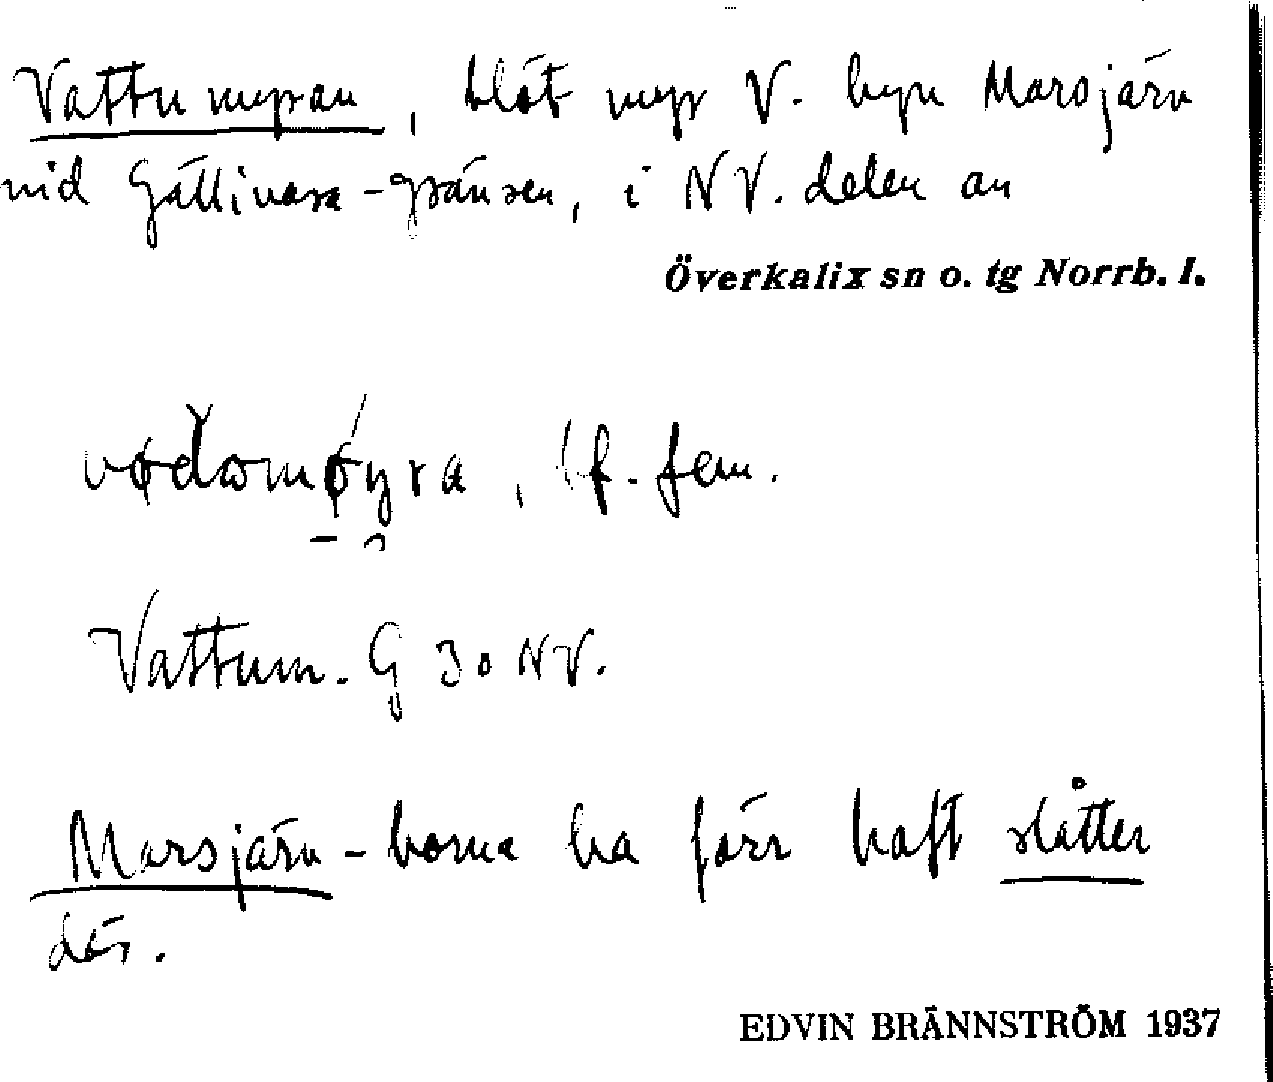 Vattumyran, blöt myr V. byn Marsjärv
vid Gällivare-gränsen, i NV. delen av
Överkalix sn o. tg Norrb. l.
bf. fem.
Vattum. G 30 NV.
Marsjärv-borna ha förr haft slåtter
där.
EDVIN BRÄNNSTRÖM 1937